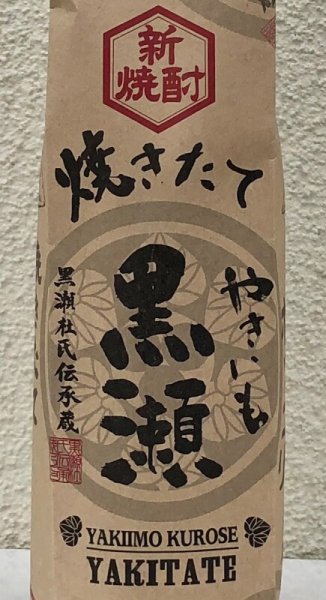 新
焼酎
焼きたて
やきいも
黒瀬
黒瀬杜氏伝承蔵
YAKIIMO KUROSE
YAKITATE